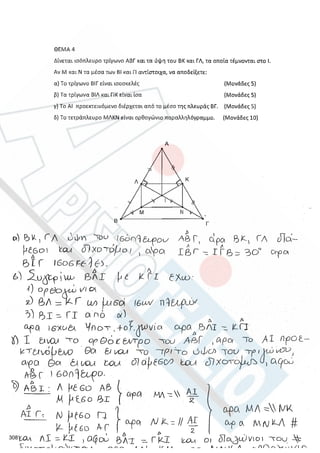 ΘΕΜΑ 4
Δίνεται ισόπλευρο τρίγωνο ΑΒΓ και τα ύψη του ΒΚ και ΓΛ, τα οποία τέμνονται στο Ι.
Αν Μ και Ν τα μέσα των ΒΙ και ΓΙ αντίστοιχα, να αποδείξετε:
α) Το τρίγωνο ΒΙΓ είναι ισοσκελές (Μονάδες 5)
β) Τα τρίγωνα ΒΙΛ και ΓΙΚ είναι ίσα (Μονάδες 5)
γ) Το ΑΙ προεκτεινόμενο διέρχεται από το μέσο της πλευράς ΒΓ. (Μονάδες 5)
δ) Το τετράπλευρο ΜΛΚΝ είναι ορθογώνιο παραλληλόγραμμο. (Μονάδες 10)
Α
Λ Κ
Ι
Μ Ν
Β Γ
α) ΒΚ, ΓΛ ύψη του ισοπλεύρου ΑΒΓ, άρα ΒΚ, ΓΛ διά-
μεσοι και διχοτόμοι, άρα ΙΒΓ = ΙΓΒ = 30° αρα
ΒΙΓ ισοσκελές.
β) Συγκρίνω ΒΛΙ με ΚΓΙ έχω:
1) ορθογώνια
2) ΒΛ = ΚΓ ως μισά ίσων πλευρών
3) ΒΙ = ΓΙ από α)
αρα ισχύει Υποτ. + οξ. γωνία αρα ΒΛΙ = ΚΓΙ
γ) Ι είναι το ορθόκεντρο του ΑΒΓ, αρα το ΑΙ προε-
κτεινόμενο θα είναι το τρίτο ύψος του τριγώνου,
αρα θα είναι και διάμεσος και διχοτόμος, αφού
ΑΒΓ ισόπλευρο.
δ) ΑΒΙ: Λ μέσο ΑΒ
Μ μέσο ΒΙ αρα ΜΛ = // ΑΙ/2
ΑΙΓ: Ν μέσο ΓΙ αρα ΜΛ = // ΝΚ
Κ μέσο ΑΓ αρα ΝΚ = // ΑΙ/2 αρα ΜΝΚΛ #
308 και ΛΙ = ΚΙ, αφού ΒΛΙ = ΓΚΙ και οι διαγώνιοι του #